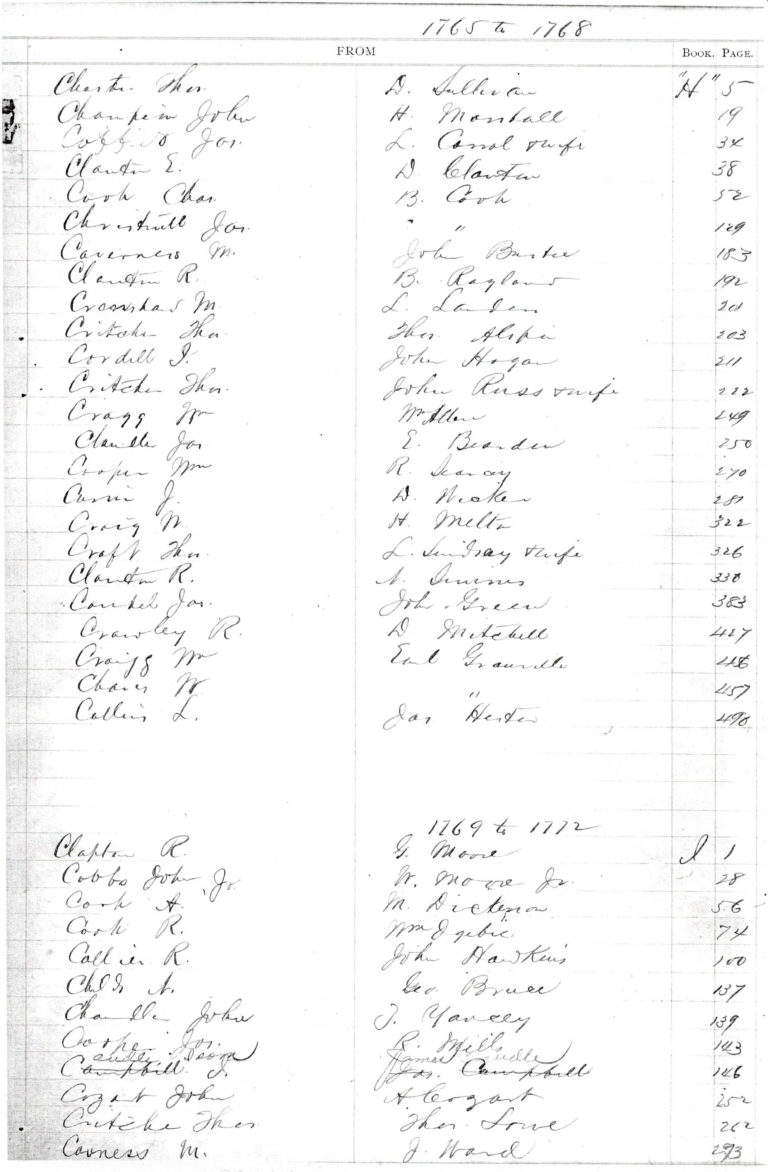 1765 to 1768
FROM BOOK. PAGE.
Thos. D. Sullivan "H" 5
Champion John H. Marshall 19
Jas. L. Carrol & wife 34
Clanton E. D. Clanton 38
Cook Chas. B. Cook 52
Jas. " " 129
Caverness M. John 183
Clanton R. B. Ragland 192
Crenshaw M. L. Landers 201
Critcher Thos. Thos. 203
Cordell J. John Hogan 211
Critcher Thos. John Russ & wife 222
Cragg Wm Wm Allen 249
Chandler Jas E. Bearden 250
Cooper Wm R. Searcy 270
J. D. Wicker 281
Craig W. H. Melton 322
Craft Thos. L. Lindsay & wife 326
Clanton R. N. 330
Jas. John Green 383
Crawley R. D. Mitchell 427
Craigg Wm Earl Granville 456
W. " 457
Collins L. Jas Hester 490
1769 to 1772
Clapton R. G. Moore I 1
Cobbs John Jr. W. Moore Jr. 28
Cook A. M. Dickerson 56
Cook R. Wm 74
Collier R. John Hawkins 100
Childs N. Geo. Bruce 137
Chandler John J. Yancey 139
Cooper Jas. R. Mills 143
Campbill J. James Jas. Campbill 146
Cozart John A Cozart 252
Critcher Thos Thos. Lowe 262
Caverness M. J. Ward 293